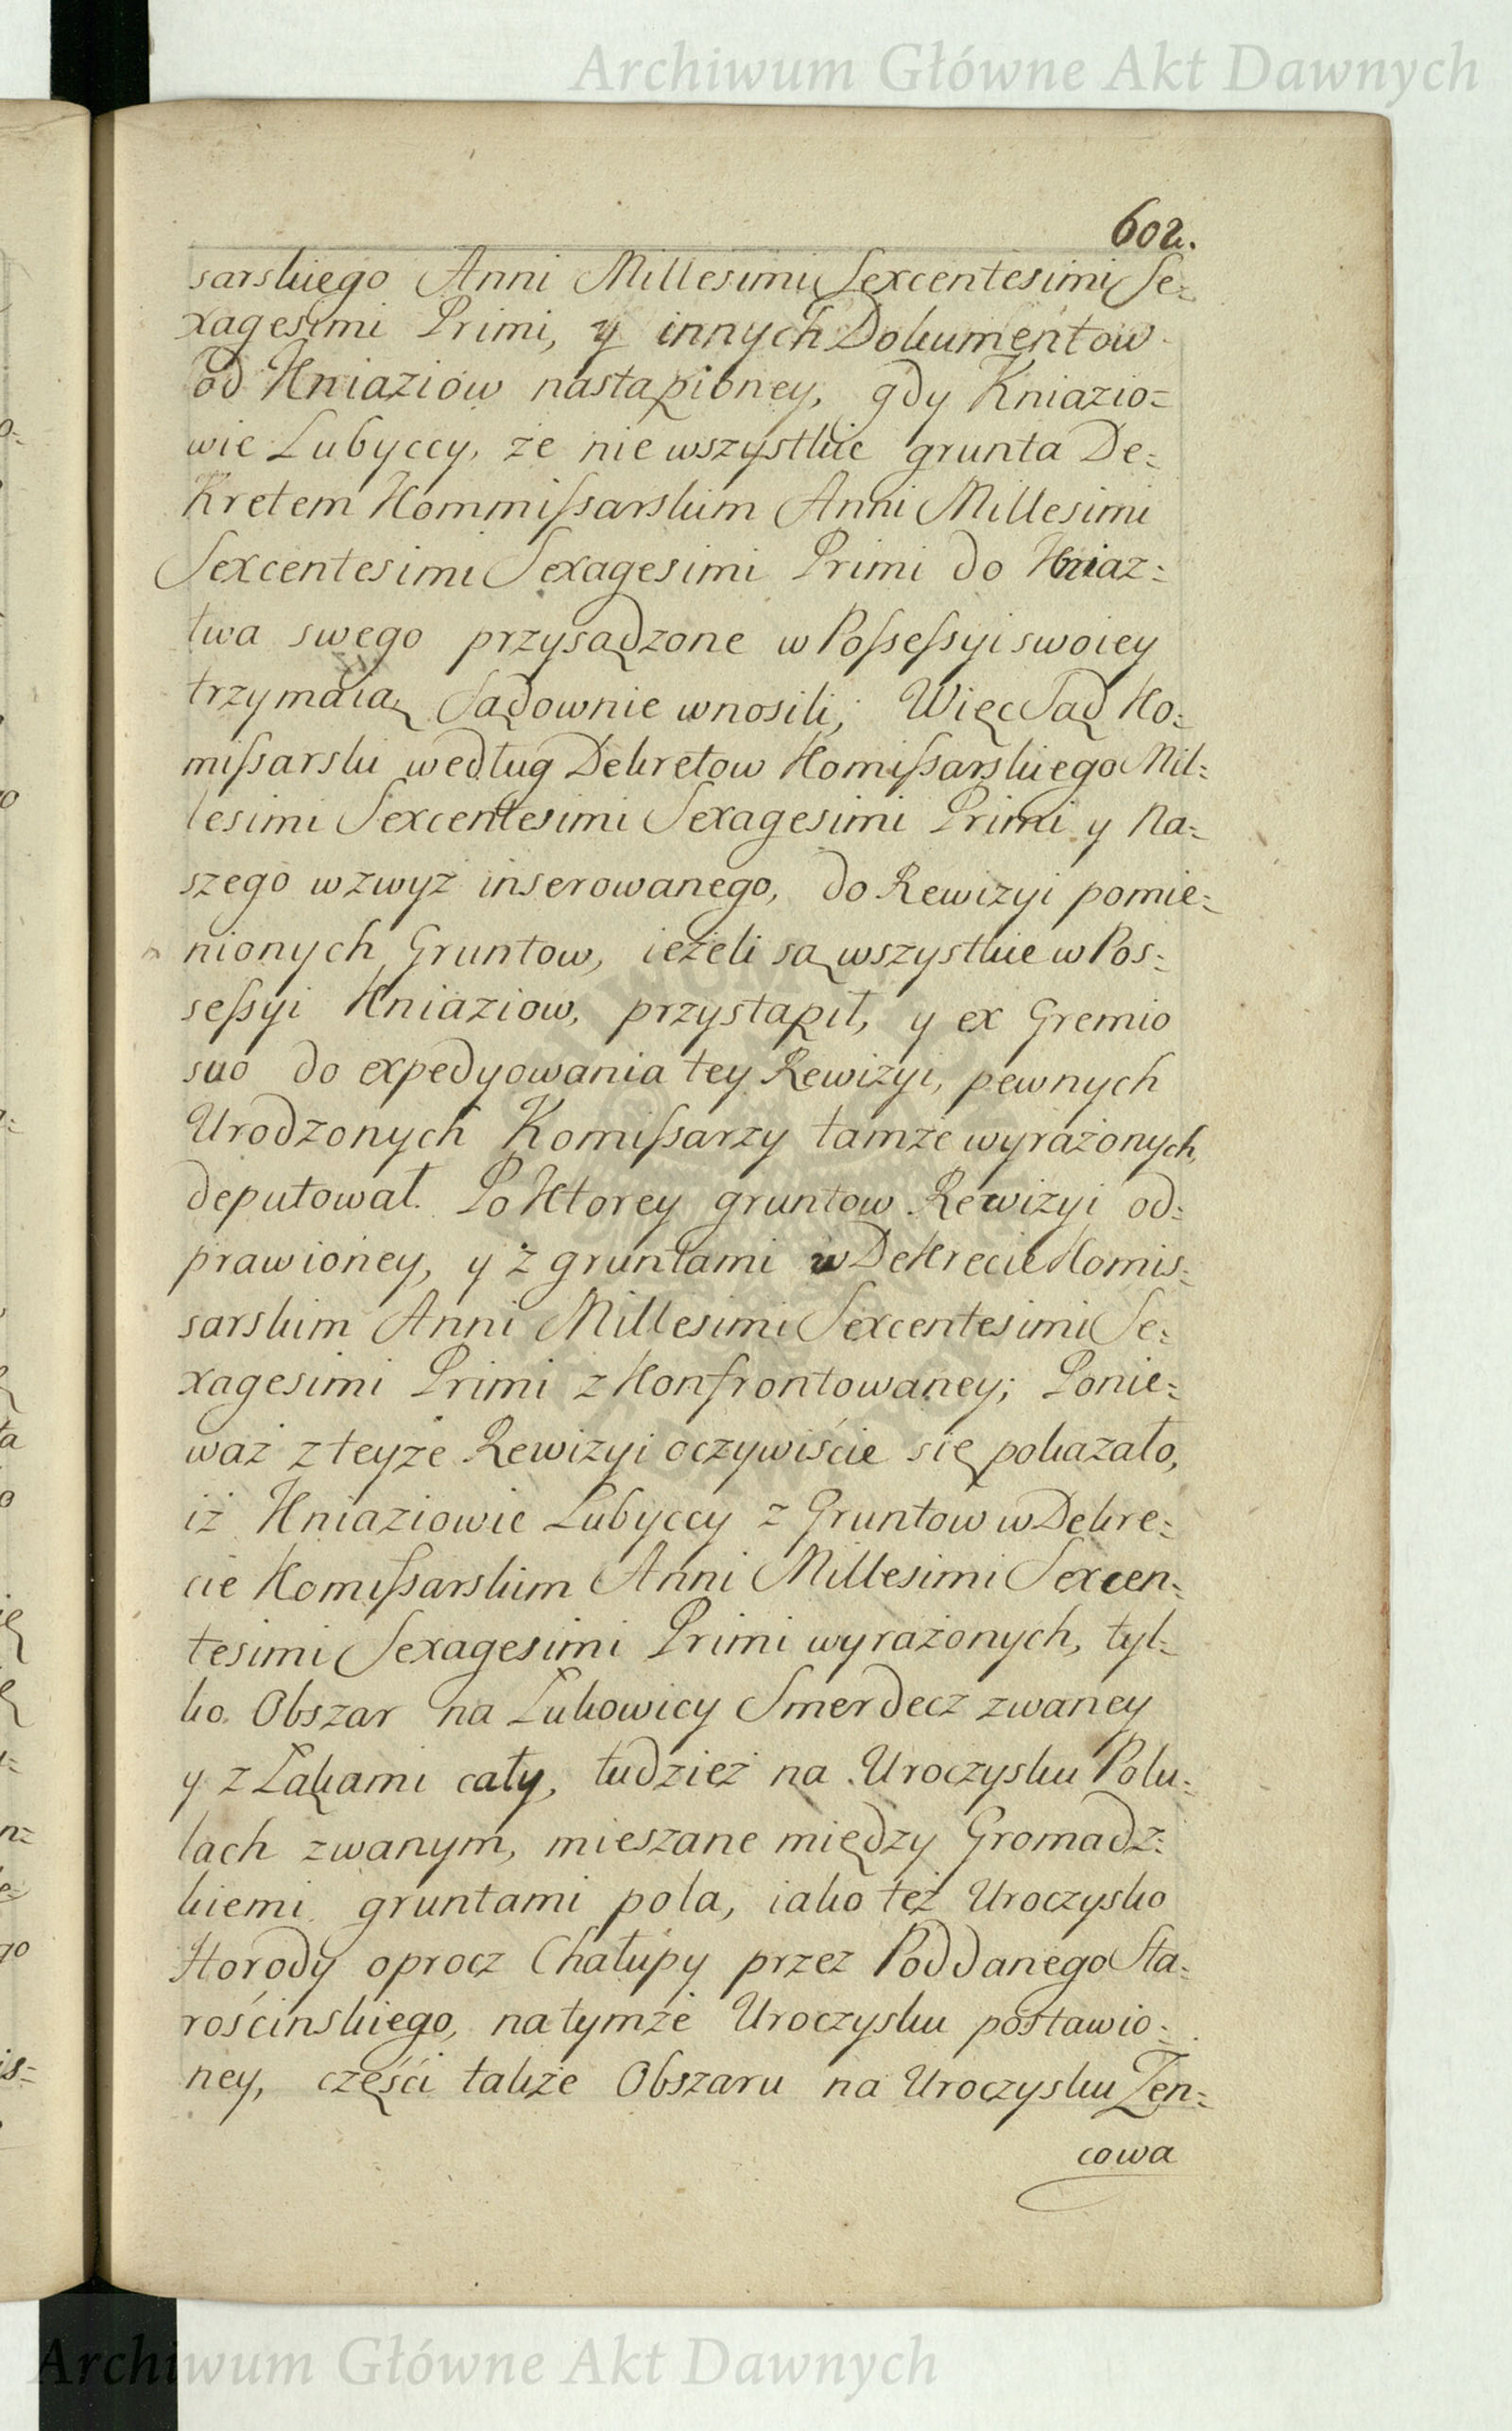 Archiwum Główne Akt Dawnych
602.
sarskiego Anni Millesimi Sexcentesimi Se=
xagesimi Primi, y innych Dokumentow
od Kniaziow nastąpioney, gdy Kniazio=
wie Lubyccy, że nie wszystkie grunta De=
kretem Kommissarskim Anni Millesimi
Sexcentesimi Sexagesimi Primi do Kniaz=
twa swego przysądzone w Possessyi swoiey
trzymaią Sądownie wnosili; Więc Sąd Ko=
missarski według Dekretow Komissarskiego Mil=
lesimi Sexcentesimi Sexagesimi Primi y Na=
szego wzwyż inserowanego, do Rewizyi pomie=
nionych Gruntow, ieżeli są wszystkie w Pos=
sessyi Kniaziow, przystąpił, y ex Gremio
suo do expedyowania tey Rewizyi, pewnych
Urodzonych Komissarzy tamże wyrażonych,
deputował. Po Ktorey gruntow Rewizyi od=
prawioney, y z gruntami w Dekrecie Komis=
sarskim Anni Millesimi Sexcentesimi Se=
xagesimi Primi z Konfrontowaney; Ponie=
waż z teyże Rewizyi oczywiście się pokazało,
iż Kniaziowie Lubyccy z Gruntow w Dekre=
cie Komissarskim Anni Millesimi Sexcen=
tesimi Sexagesimi Primi wyrażonych, tyl=
ko Obszar na Łukowicy Smerdecz zwaney
y z Łąkami cały, tudzież na Uroczysku Polu=
lach zwanym, mieszane między Gromadz=
kiemi gruntami pola, iako też Uroczysko
Horody oprocz Chałupy przez Poddanego Sta=
rościnskiego, na tymże Uroczysku postawio=
ney, części także Obszaru na Uroczysku Zen=
cowa
Archiwum Główne Akt Dawnych